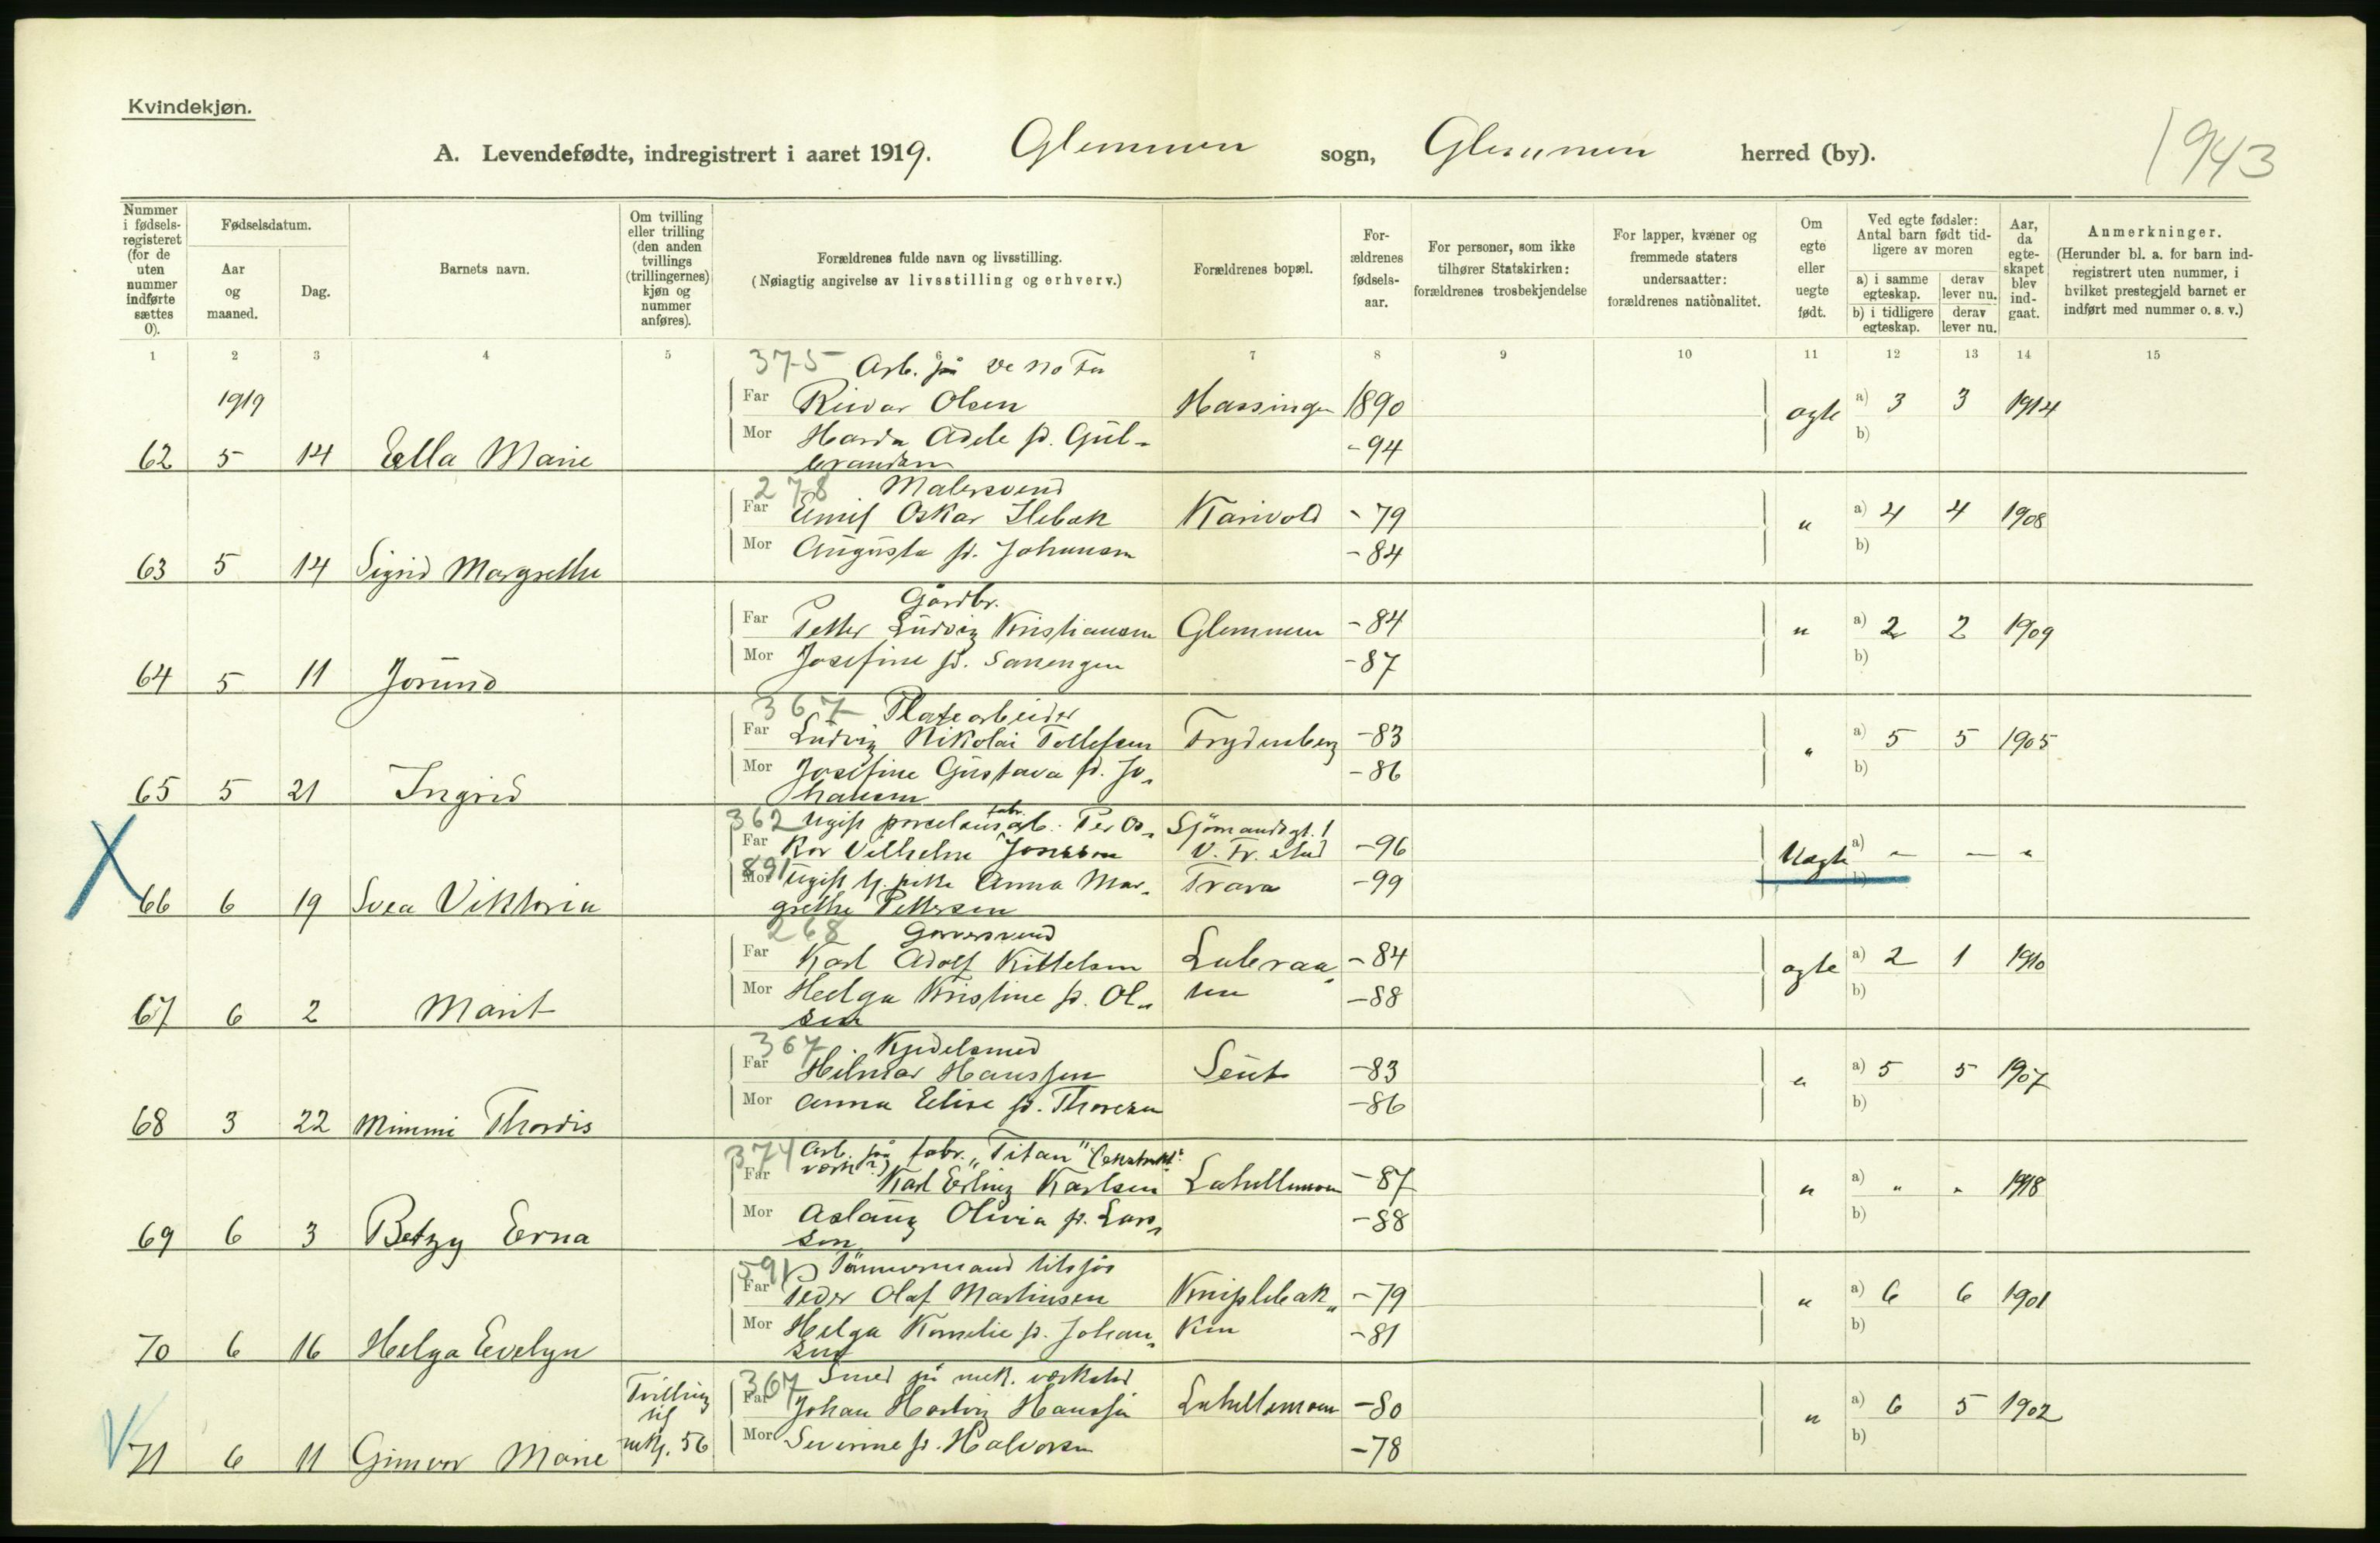 Kvindekjøn.
A. Levendefødte, indregistrert i aaret 1919. Glemmen sogn, Glemmen herred (by).
1943
Nummer i fødsels-registeret (for de uten nummer indførte sættes 0).
Fødselsdatum.
Aar og maaned.
Dag.
Barnets navn.
Om tvilling eller trilling (den anden tvillings (trillingernes) kjøn og nummer anføres).
Forældrenes fulde navn og livsstilling.
(Nøiagtig angivelse av livsstilling og erhverv.)
Forældrenes bopæl.
For-ældrenes fødsels-aar.
For personer, som ikke tilhører Statskirken: forældrenes trosbekjendelse
For lapper, kvæner og fremmede staters undersaatter: forældrenes nationalitet.
Om egte eller uegte født.
Ved egte fødsler: Antal barn født tid-ligere av moren
a) i samme egteskap.
derav lever nu.
b) i tidligere egteskap.
derav lever nu.
Aar, da egte-skapet blev ind-gaat.
Anmerkninger.
(Herunder bl. a. for barn ind-registrert uten nummer, i hvilket prestegjeld barnet er indført med nummer o. s. v.)
1 2 3 4 5 6 7 8 9 10 11 12 13 14 15
375 Arb. på De No Fa
1919
Far Reidar Olsen Hassingen 1890 ægte a) 3 3 1914
Mor Adele f. Gul- -94 b)
62 5 14 Ella Marie brandsen
278 Malersvend
Far Emil Oskar Ilebæk Karivold -79 " a) 4 4 1908
Mor Augusta f. Johansen -84 b)
63 5 14 Sigrid Margrethe
Gårdbr.
Far Petter Ludvig Kristiansen Glemmen -84 " a) 2 2 1909
Mor Josefine f. Sanengen -87 b)
64 5 11 Jorund
367 Platearbeider
Far Ludvig Nikolai Tollefsen Trydenberg -83 " a) 5 5 1905
Mor Josefine Gustava f. Jo- -86 b)
65 5 21 Ingrid hansen
362 Ugift porcelænsfabr. arb. Per Os- Sjömandsgt. 1
Far kar Vilhelm Jonsson V. Fr.stad -96 Uægte a) - - "
891 Mor Ugift tj. pike Anna Mar- Trara -99 b)
66 6 19 Svea Viktoria grethe Pettersen
268 Garversvend
Far Karl Adolf Kittelsen Luleraa- -84 ægte a) 2 1 1910
Mor Helga Kristine f. Ol- -88 b)
67 6 2 Marit sen
367 Kjedelsmed
Far Hilmar Hanssen Seut -83 " a) 5 5 1907
Mor Anna Elise f. Thoresen -86 b)
68 3 22 Mimmi Thordis
374 Arb. på fabr. "Titan"
Far Karl Erling Karlsen Lahellemoen -87 " a) " " 1918
Mor Aslaug Olivia f. Lar- -88 b)
69 6 3 Betzy Erna sen
591 Tömmermand tilsjös
Far Peder Olaf Martinsen Kniplebak- -79 " a) 6 6 1901
Mor Helga Kornelie f. Johan- ken -81 b)
70 6 16 Helga Evelyn sen
Tvilling til mkj. 56
367 Smed på mek. verksted
Far Johan Hartvig Hanssen Lahellemoen -80 " a) 6 5 1902
Mor Severine f. Halvorsen -78 b)
71 6 11 Gunvor Marie